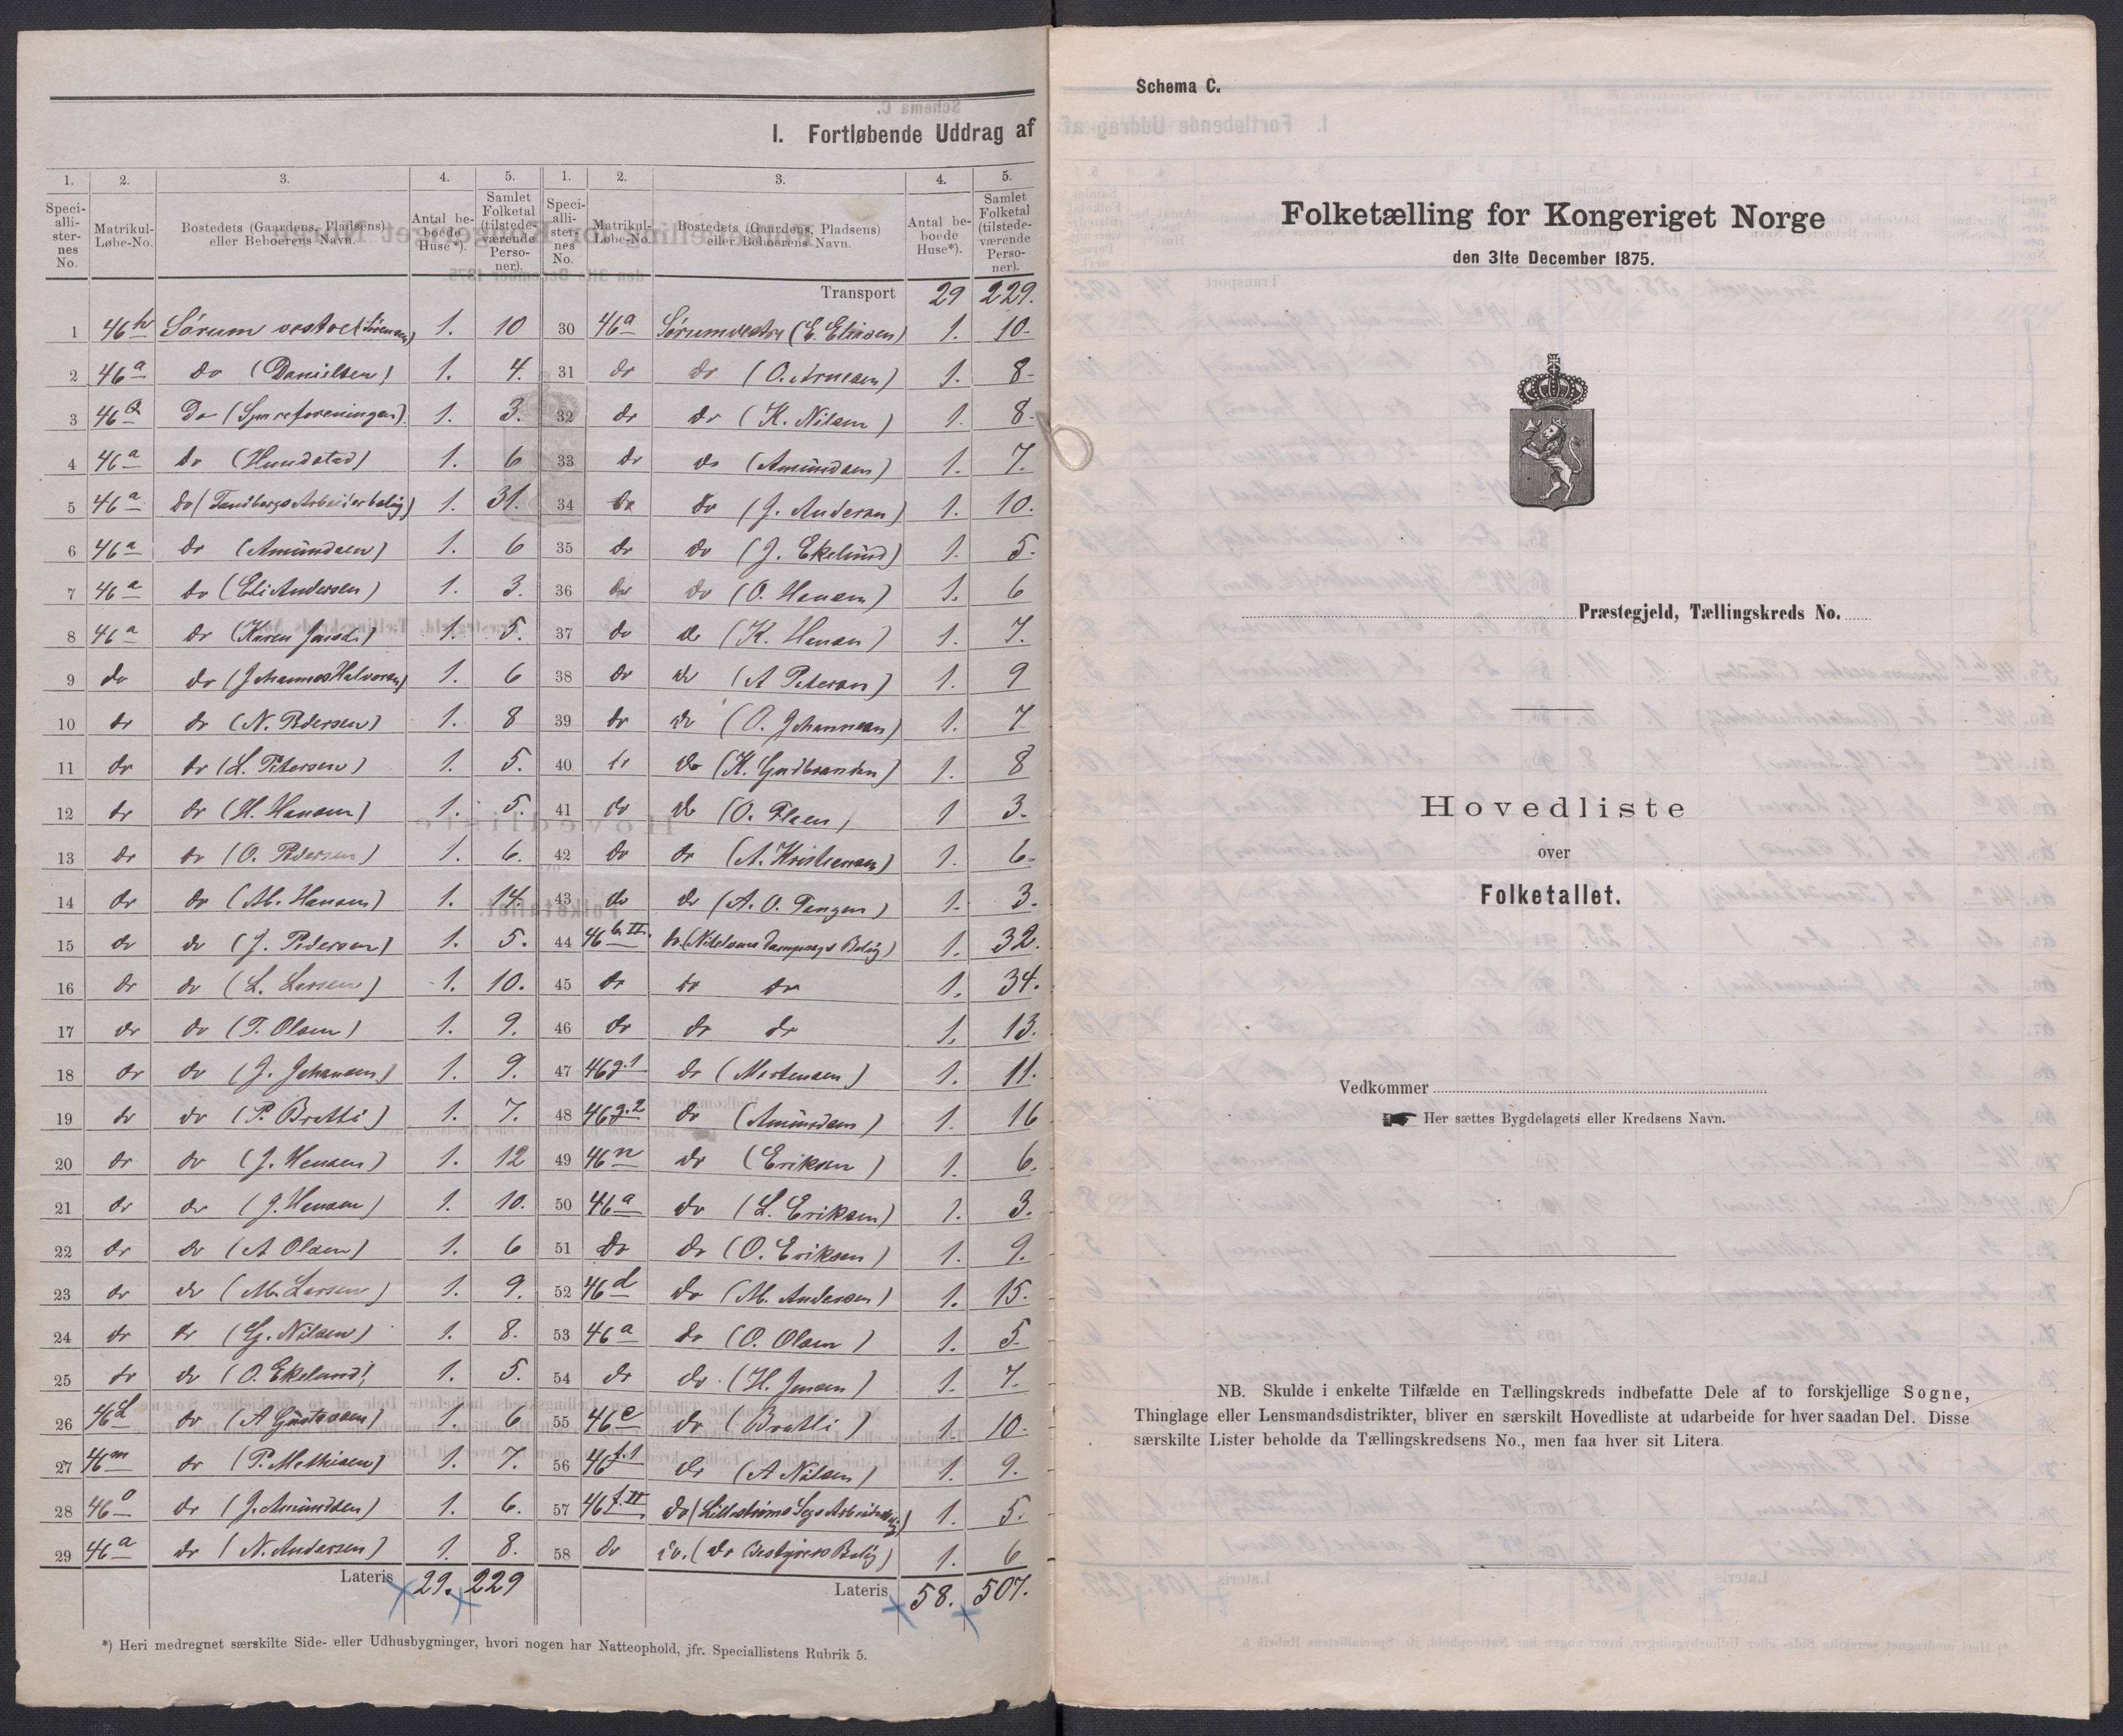 I. Fortløbende Uddrag af
1. 2. 3. 4. 5. 1. 2. 3. 4. 5.
Speciallisternes No. Matrikul-Løbe-No. Bostedets (Gaardens, Pladsens) eller Beboerens Navn. Antal beboede Huse*). Samlet Folketal (tilstedeværende Personer). Speciallisternes No. Matrikul-Løbe-No. Bostedets (Gaardens, Pladsens) eller Beboerens Navn. Antal beboede Huse*). Samlet Folketal (tilstedeværende Personer).
Transport 29 229.
1 Sørum vestre 1. 10 30 46a Sørum vestre (E. Eliasen) 1. 10.
2 46a do (Danielsen) 1. 4. 31 do do (O. Arnesen) 1. 8
3 46a Do (Spareforeningen) 1. 3. 32 do do (K. Nilsen) 1. 8
4 46a do (Hundstad) 1. 6 33 do do (Amundsen) 1. 7.
5 46a do (Tandbergs Arbeiderbolig) 1. 31. 34 do do (J. Andersen) 1. 10.
6 46a do (Amundsen) 1. 6 35 do do (J. Ekelund) 1. 5.
7 46a do (Eli Andersen) 1. 3. 36 do do (O. Hansen) 1. 6
8 46a do (Karen Jansd.) 1. 5. 37 do do (K. Hansen) 1. 7.
9 do do (Johannes Halvorsen) 1. 6 38 do do (A Petersen) 1. 9
10 do do (N. Pedersen) 1. 8 39 do do (O. Johannesen) 1. 7
11 do do (L. Petersen) 1. 5. 40 do do (K. Gudbrandsen) 1. 8
12 do do (H. Hansen) 1. 5. 41 do do (O. Flaen) 1 3.
13 do do (O. Pedersen) 1. 6. 42 do do (A. Kristiansen) 1. 6
14 do do (M. Hansen) 1. 14. 43 do do (A. O. Tangen) 1. 3.
15 do do (J. Pedersen) 1. 5. 44 46 b.II. do (Nitelvens Dampsags Bolig) 1. 32.
16 do do (L. Larsen) 1. 10. 45 do do do 1. 34.
17 do do (T. Olsen) 1. 9. 46 do do do 1. 13.
18 do do (J. Johansen) 1. 9. 47 46g.1 do (Mortensen) 1. 11.
19 do do (P. Bratli) 1. 7. 48 46g.2 do (Amundsen) 1. 16
20 do do (J. Hansen) 1. 12 49 46n do (Eriksen) 1. 6.
21 do do (J. Hansen) 1. 10. 50 46a do (L. Eriksen) 1. 3.
22 do do (A Olsen) 1. 6 51 Do do (O. Eriksen) 1. 9.
23 do do (M. Larsen) 1. 9. 52 46d do (M. Andersen) 1. 15.
24 do do (G. Nilsen) 1. 8. 53 46a do (O. Olsen) 1. 5.
25 do do (O. Ekelund) 1. 5. 54 do do (H. Jensen) 1. 7.
26 46L do (A Gustavsen) 1. 6 55 46e do (Bratli) 1. 10.
27 46m do (P. Mathisen) 1. 7. 56 46f.1 do (A Nilsen) 1. 9.
28 46o do (J. Amundsen) 1. 6. 57 46f.II do (Lillestrøms Sags Arbeiderbolig) 1. 5.
29 46a do (N. Andersen) 1. 8. 58 do do (do Bestyrers Bolig) 1. 6
Lateris 29. 229 Lateris 58. 507.
*) Heri medregnet særskilte Side- eller Udhusbygninger, hvori nogen har Natteophold, jfr. Speciallistens Rubrik 5.
Schema C.
Folketælling for Kongeriget Norge
den 31te December 1875.
Præstegjeld, Tællingskreds No.
Hovedliste
over
Folketallet.
Vedkommer
Her sættes Bygdelagets eller Kredsens Navn.
NB. Skulde i enkelte Tilfælde en Tællingskreds indbefatte Dele af to forskjellige Sogne,
Thinglage eller Lensmandsdistrikter, bliver en særskilt Hovedliste at udarbeide for hver saadan Del. Disse
særskilte Lister beholde da Tællingskredsens No., men faa hver sit Litera.